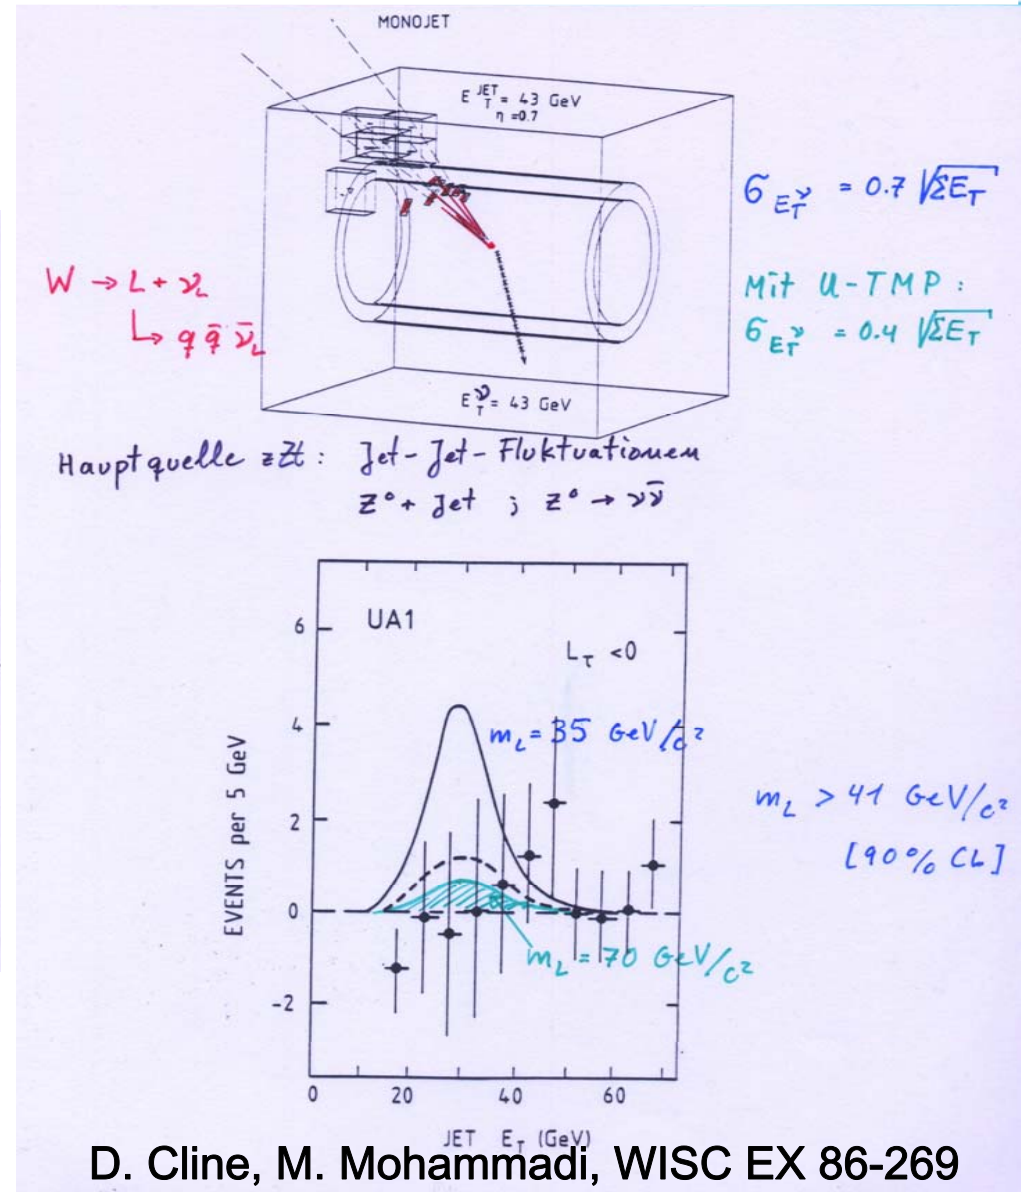 MONOJET
E_T^JET = 43 GeV
η = 0.7
σ_{E_T^ν} = 0.7 √ΣE_T
W → L + ν_L
↳ q q̄ ν̄_L
Mit U-TMP :
σ_{E_T^ν} = 0.4 √ΣE_T
E_T^ν = 43 GeV
Hauptquelle zZt : Jet-Jet-Fluktuationen
Z° + Jet ; Z° → νν̄
UA1
L_τ <0
m_L = 35 GeV/c²
m_L > 41 GeV/c²
[90% CL]
m_L = 70 GeV/c²
EVENTS per 5 GeV
6
4
2
0
-2
0 20 40 60
JET E_T (GeV)
D. Cline, M. Mohammadi, WISC EX 86-269